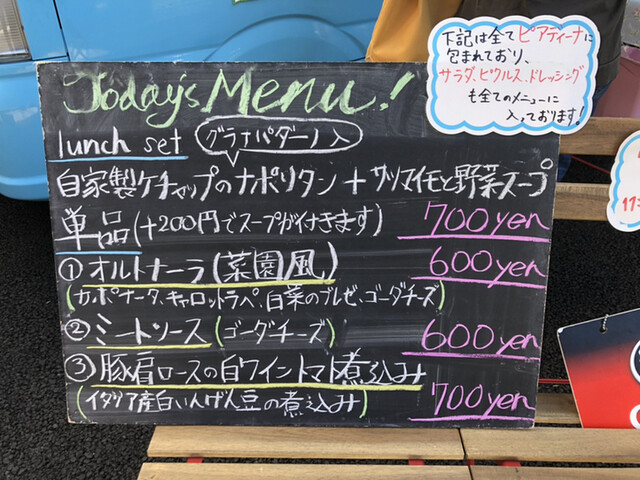 Today's Menu!
下記は全てピアディーナに
包まれており、
サラダ、ピクルス、ドレッシング
も全てのメニューに
入っております!
lunch set グラナパダーノ入
自家製ケチャップのナポリタン + サツマイモと野菜スープ
700yen
単品(+200円でスープが付きます)
①オルトナーラ(菜園風) 600yen
(カポナータ、キャロットラペ、白菜のブレゼ、ゴーダチーズ)
②ミートソース(ゴーダチーズ) 600yen
③豚肩ロースの白ワイントマト煮込み
(イタリア産白いんげん豆の煮込み) 700yen